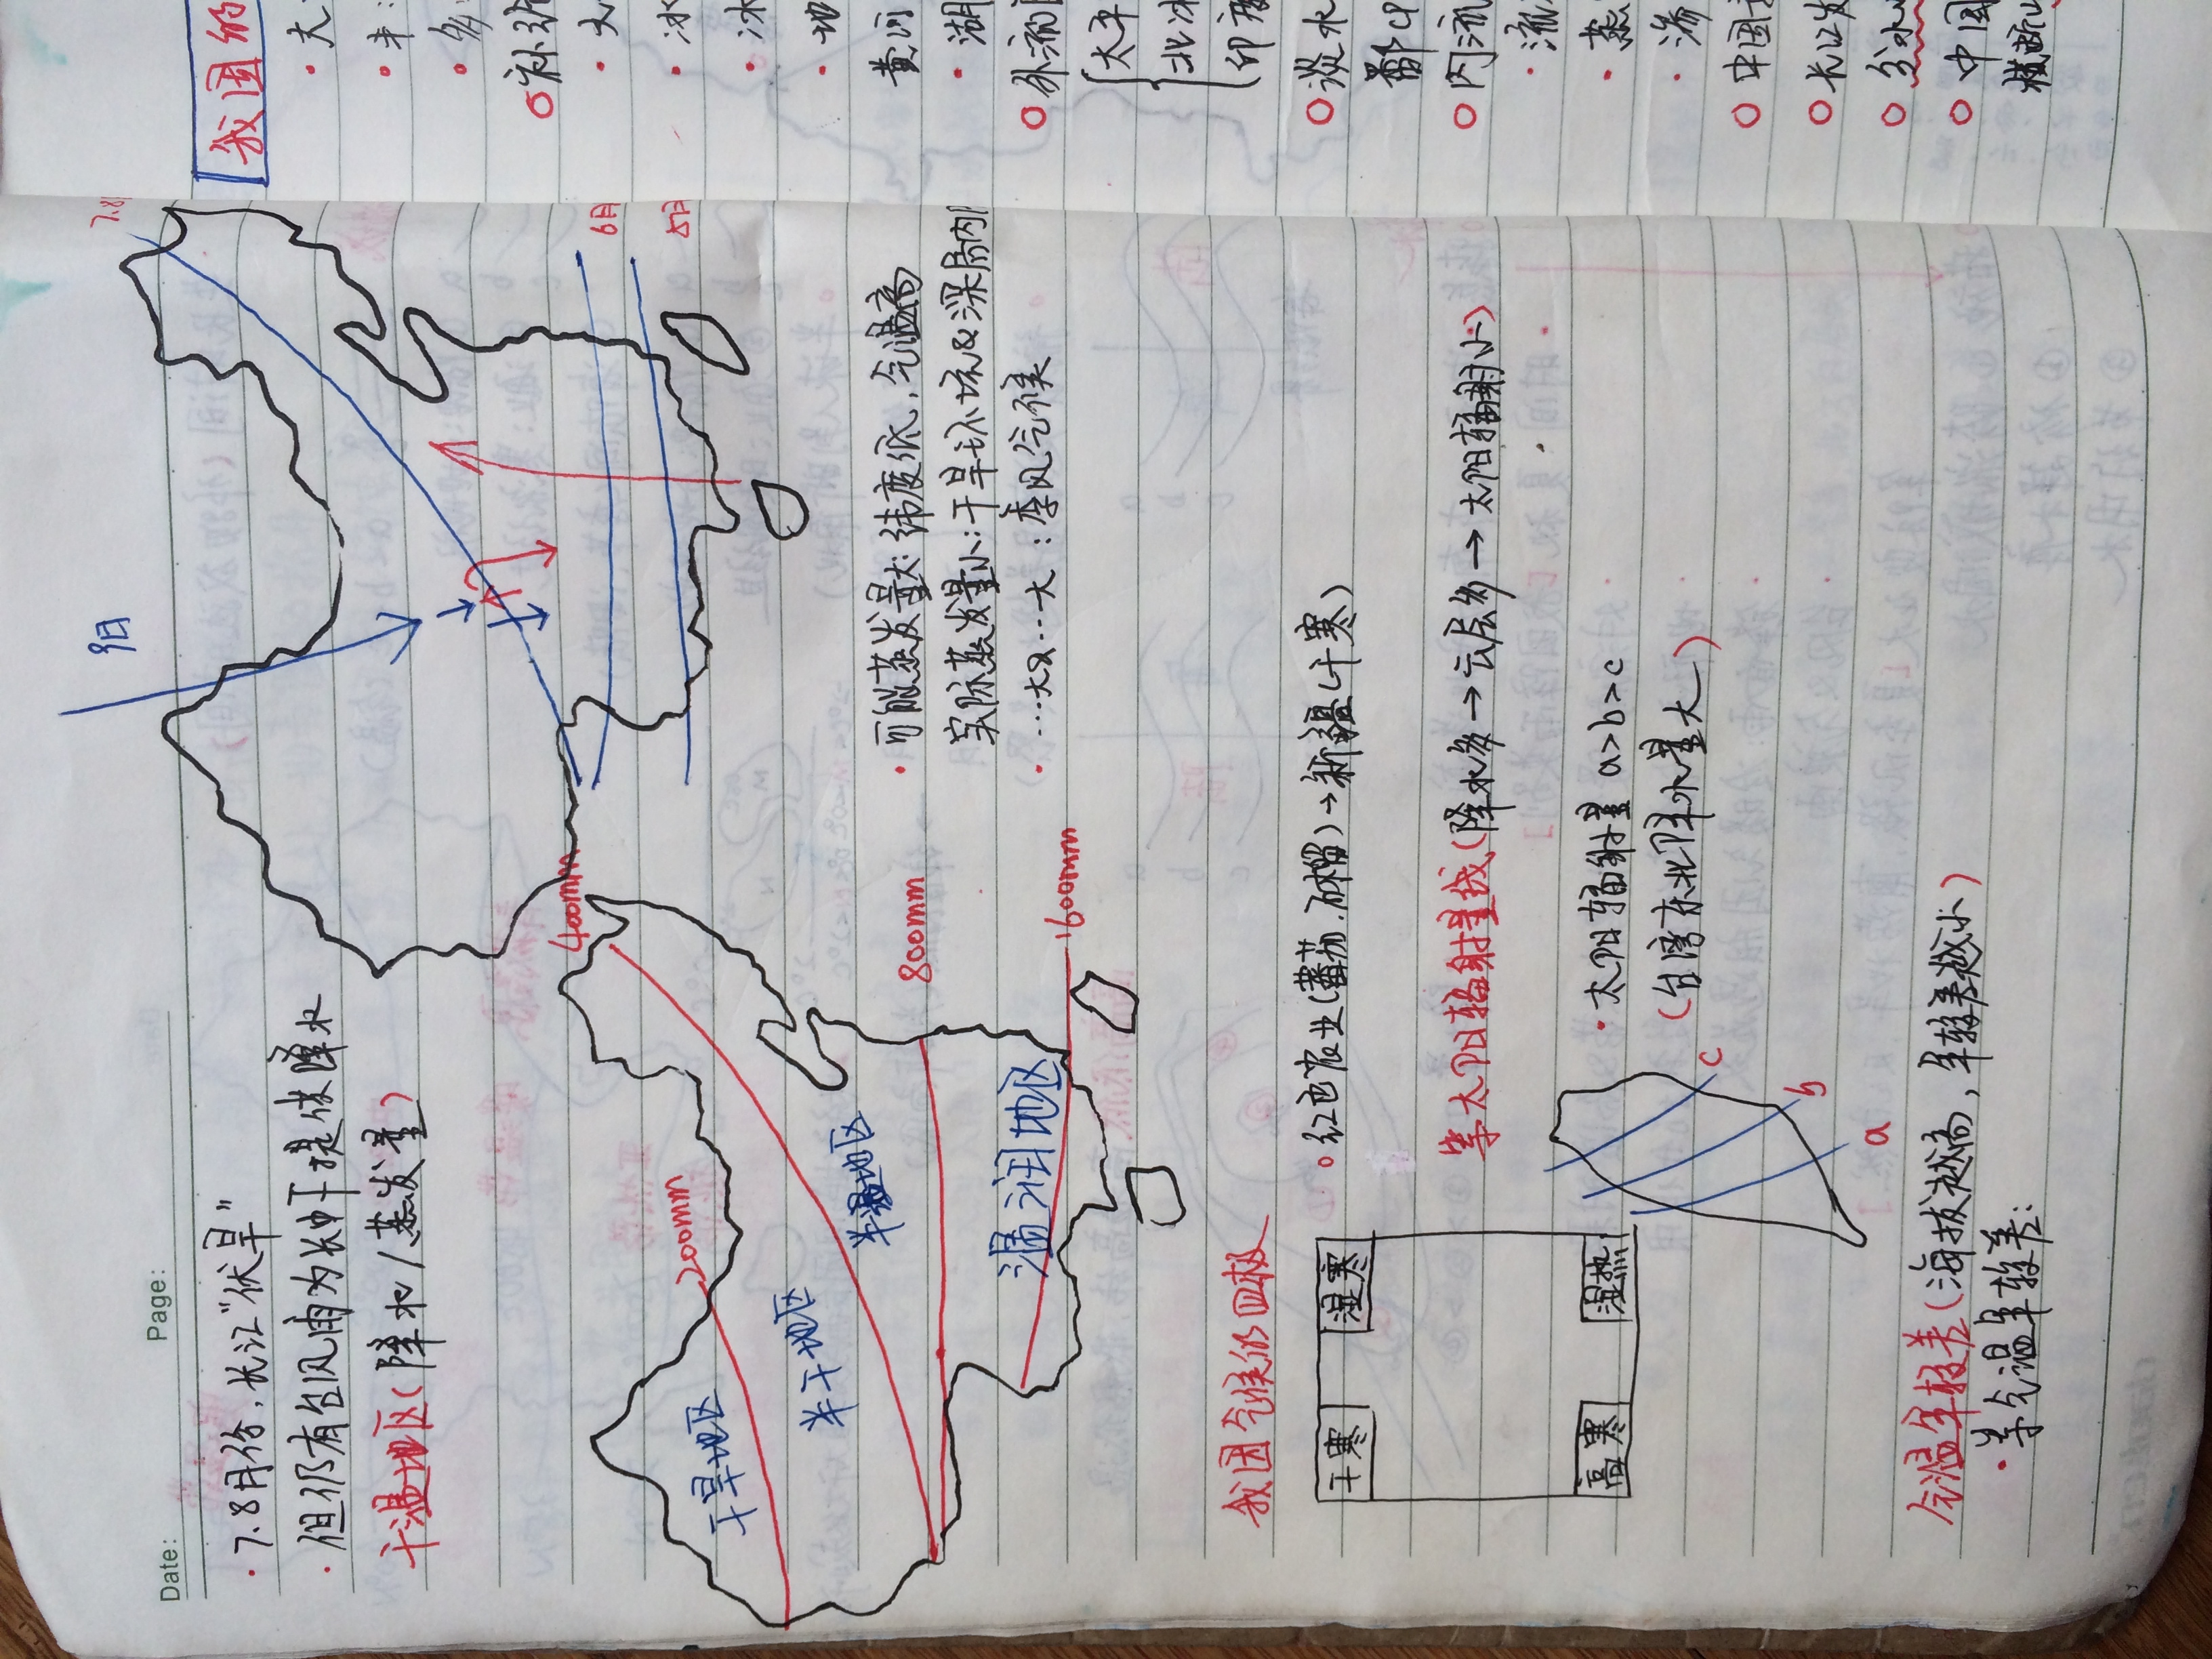 Date:
Page:
·7.8月份,长江"伏旱"
·但仍有台风雨为长中下提供降水
干湿地区(降水/蒸发量)
9月
7.8
6月
5月
400mm
200mm
干旱地区
半干地区
半湿地区
800mm
湿润地区
1600mm
·可能蒸发量大:纬度低,气温高
实际蒸发量小:干旱环境&深居内
·…大&…大:季风气候
我国气候的四极
干寒
湿寒
高寒
湿热
○红色农业(蕃茄.石榴)→新疆(干寒)
等太阳辐射量线(降水多→云层多→太阳辐射小)
·太阳辐射量 a>b>c
(台湾东北降水量大)
c
b
a
气温年较差(海拔越高,年较差越小)
·等气温年较差:
我国的
·大
·丰
·多
○补给
·冰
·冰
·地
黄河
·湖
○外流
太平
北冰
印度
○淡水
鄱
○内流
·流
·蒸
·渗
○中国
○长江发
○分水
○中国
横断山